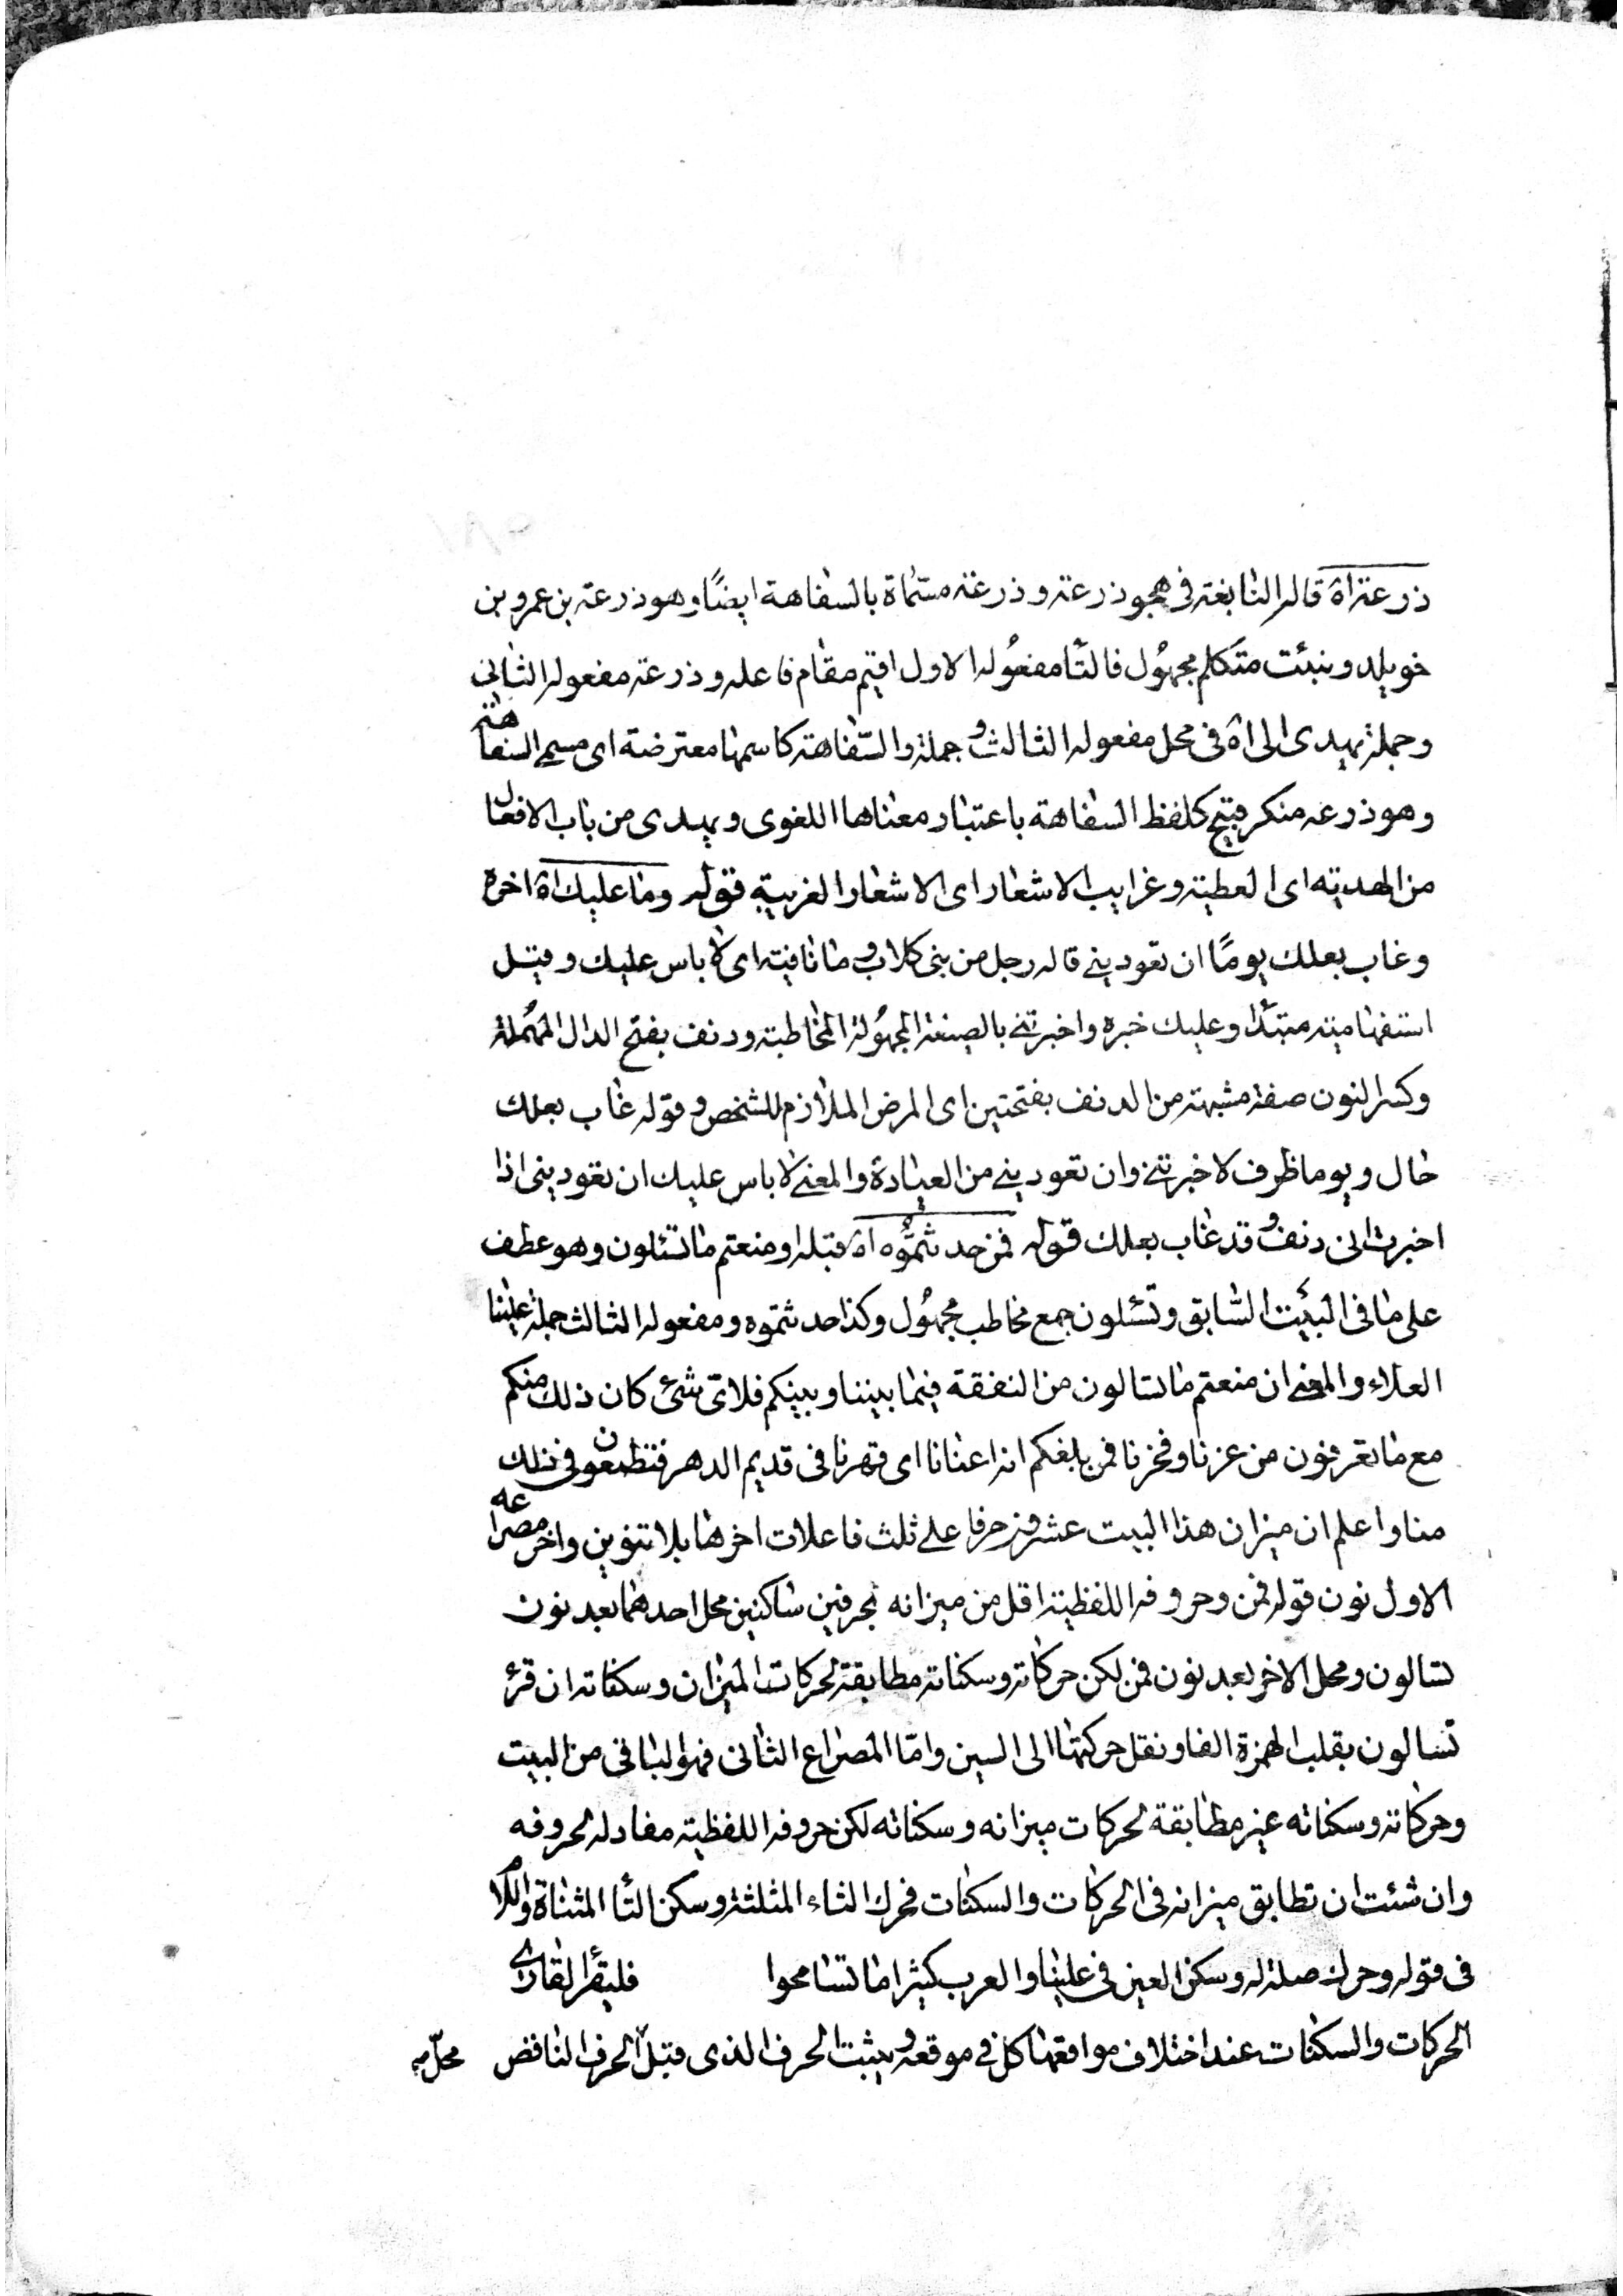 ذرعة اه قاله النابغة فى هجو ذرعة وذرعة مسماة بالسفاهة ايضًا وهو ذرعة بن عمرو بن
خويلد ونبئت متكلم مجهول فالتا مفعوله الاول اقيم مقام فاعله وذرعة مفعوله الثانى
وجملة يهدى الى اه فى محل مفعوله الثالث وجملة والسفاهة كاسمها معترضة اى مسمى السفاهة
وهو ذرعه منكر قبيح كلفظ السفاهة باعتبار معناها اللغوى ويهدى من باب الافعال
من الهدية اى العطية وغرايب الاشعار اى الاشعار الغريبة قوله وما عليك اه اخره
وغاب بعلك يومًا ان تعودينى قاله رجل من بنى كلاب وما نافية اى لا باس عليك وقيل
استفهامية مبتدأ وعليك خبره واخبرتنى بالصيغة المجهولة المخاطبة ودنف بفتح الدال المهملة
وكسر النون صفة مشبهة من الدنف بفتحتين اى المرض الملازم للشخص وقوله غاب بعلك
حال ويوما ظرف لاخبرتنى وان تعودينى من العيادة والمعنى لا باس عليك ان تعودينى اذا
اخبرت انى دنف وقد غاب بعلك قوله فمن حدثتموه اه قبله او منعتم ما تسئلون وهو عطف
على ما فى البيت السابق وتسئلون جمع مخاطب مجهول وكذا حدثتموه ومفعوله الثالث جملة علينا
العلاء والمعنى ان منعتم ما تسالون من النفقة فيما بيننا وبينكم فلاى شئ كان ذلك منكم
مع ما تعرفون من عزنا وفخرنا فمن بلغكم انه اعنانا اى قهرنا فى قديم الدهر فتظمعون فى ذلك
منا واعلم ان ميزان هذا البيت عشرون حرفا على ثلث فاعلات اخرها بلا تنوين واخر مصراعه
الاول نون قوله فمن وحروفه اللفظية اقل من ميزانه بحرفين ساكنين محل احدهما بعد نون
تسالون ومحل الاخر بعد نون فمن لكن حركاته وسكناته مطابقة لحركات الميزان وسكناته ان قرئ
تسالون بقلب الهمزة الفا ونقل حركتها الى السين وامّا المصراع الثانى فهو الباقى من البيت
وحركاته وسكناته غير مطابقة لحركات ميزانه وسكناته لكن حروفه اللفظية معادله لحروفه
وان شئت ان تطابق ميزانه فى الحركات والسكنات فحرك الثاء المثلثة وسكن التأ المثناة واللام
فى قوله وحرك صلة له وسكن العين فى علينا والعرب كثيرا ما تسامحوا فليقرأ القارى
الحركات والسكنات عند اختلاف مواقعها كل فى موقعه ويثبت الحرف الذى قبل الحرف الناقص محلّه